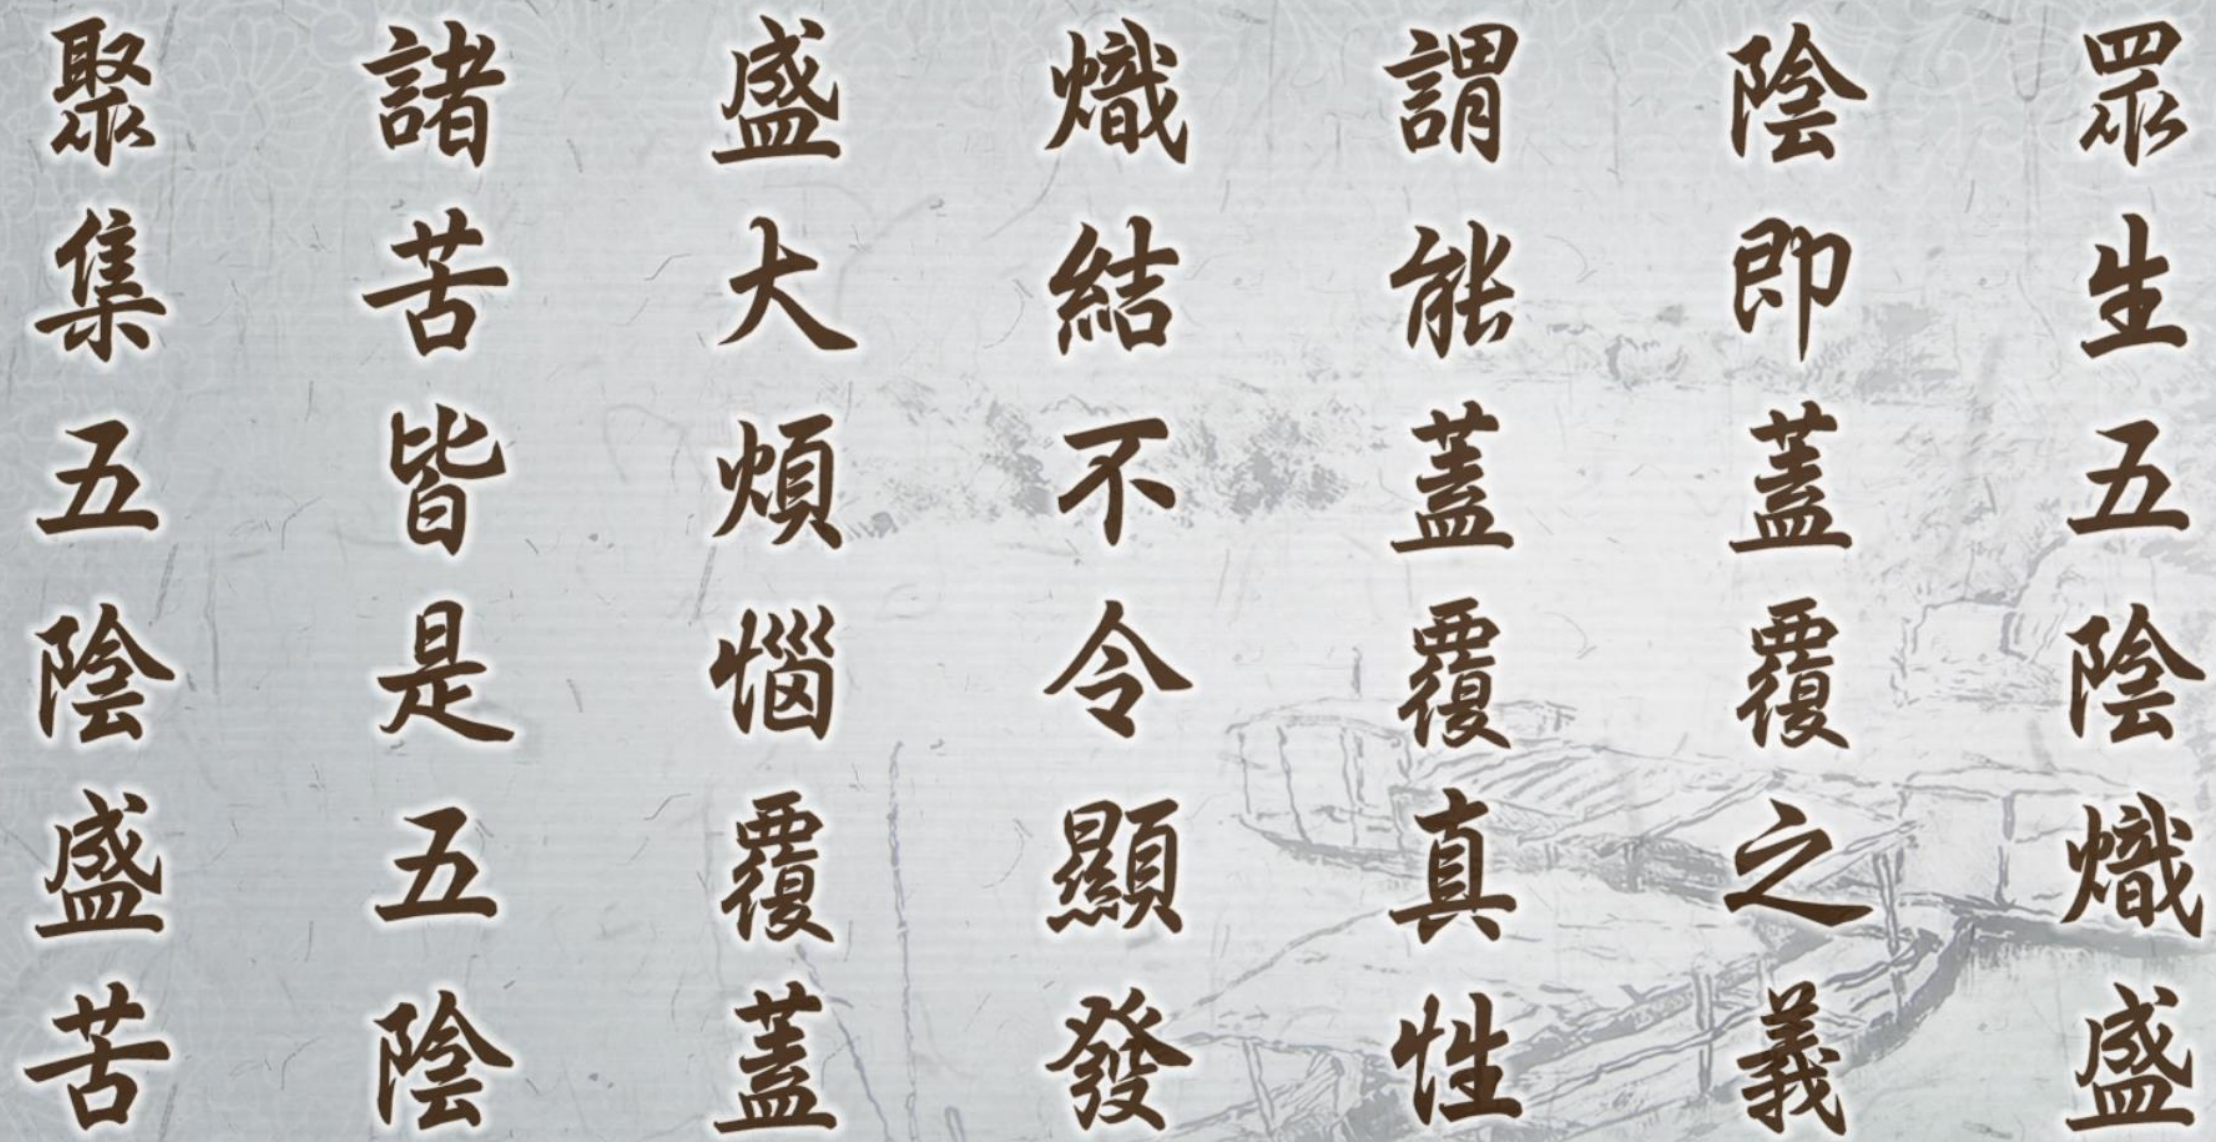 眾生五陰熾盛
陰即蓋覆之義
謂能蓋覆真性
熾結不令顯發
盛大煩惱覆蓋
諸苦皆是五陰
聚集五陰盛苦